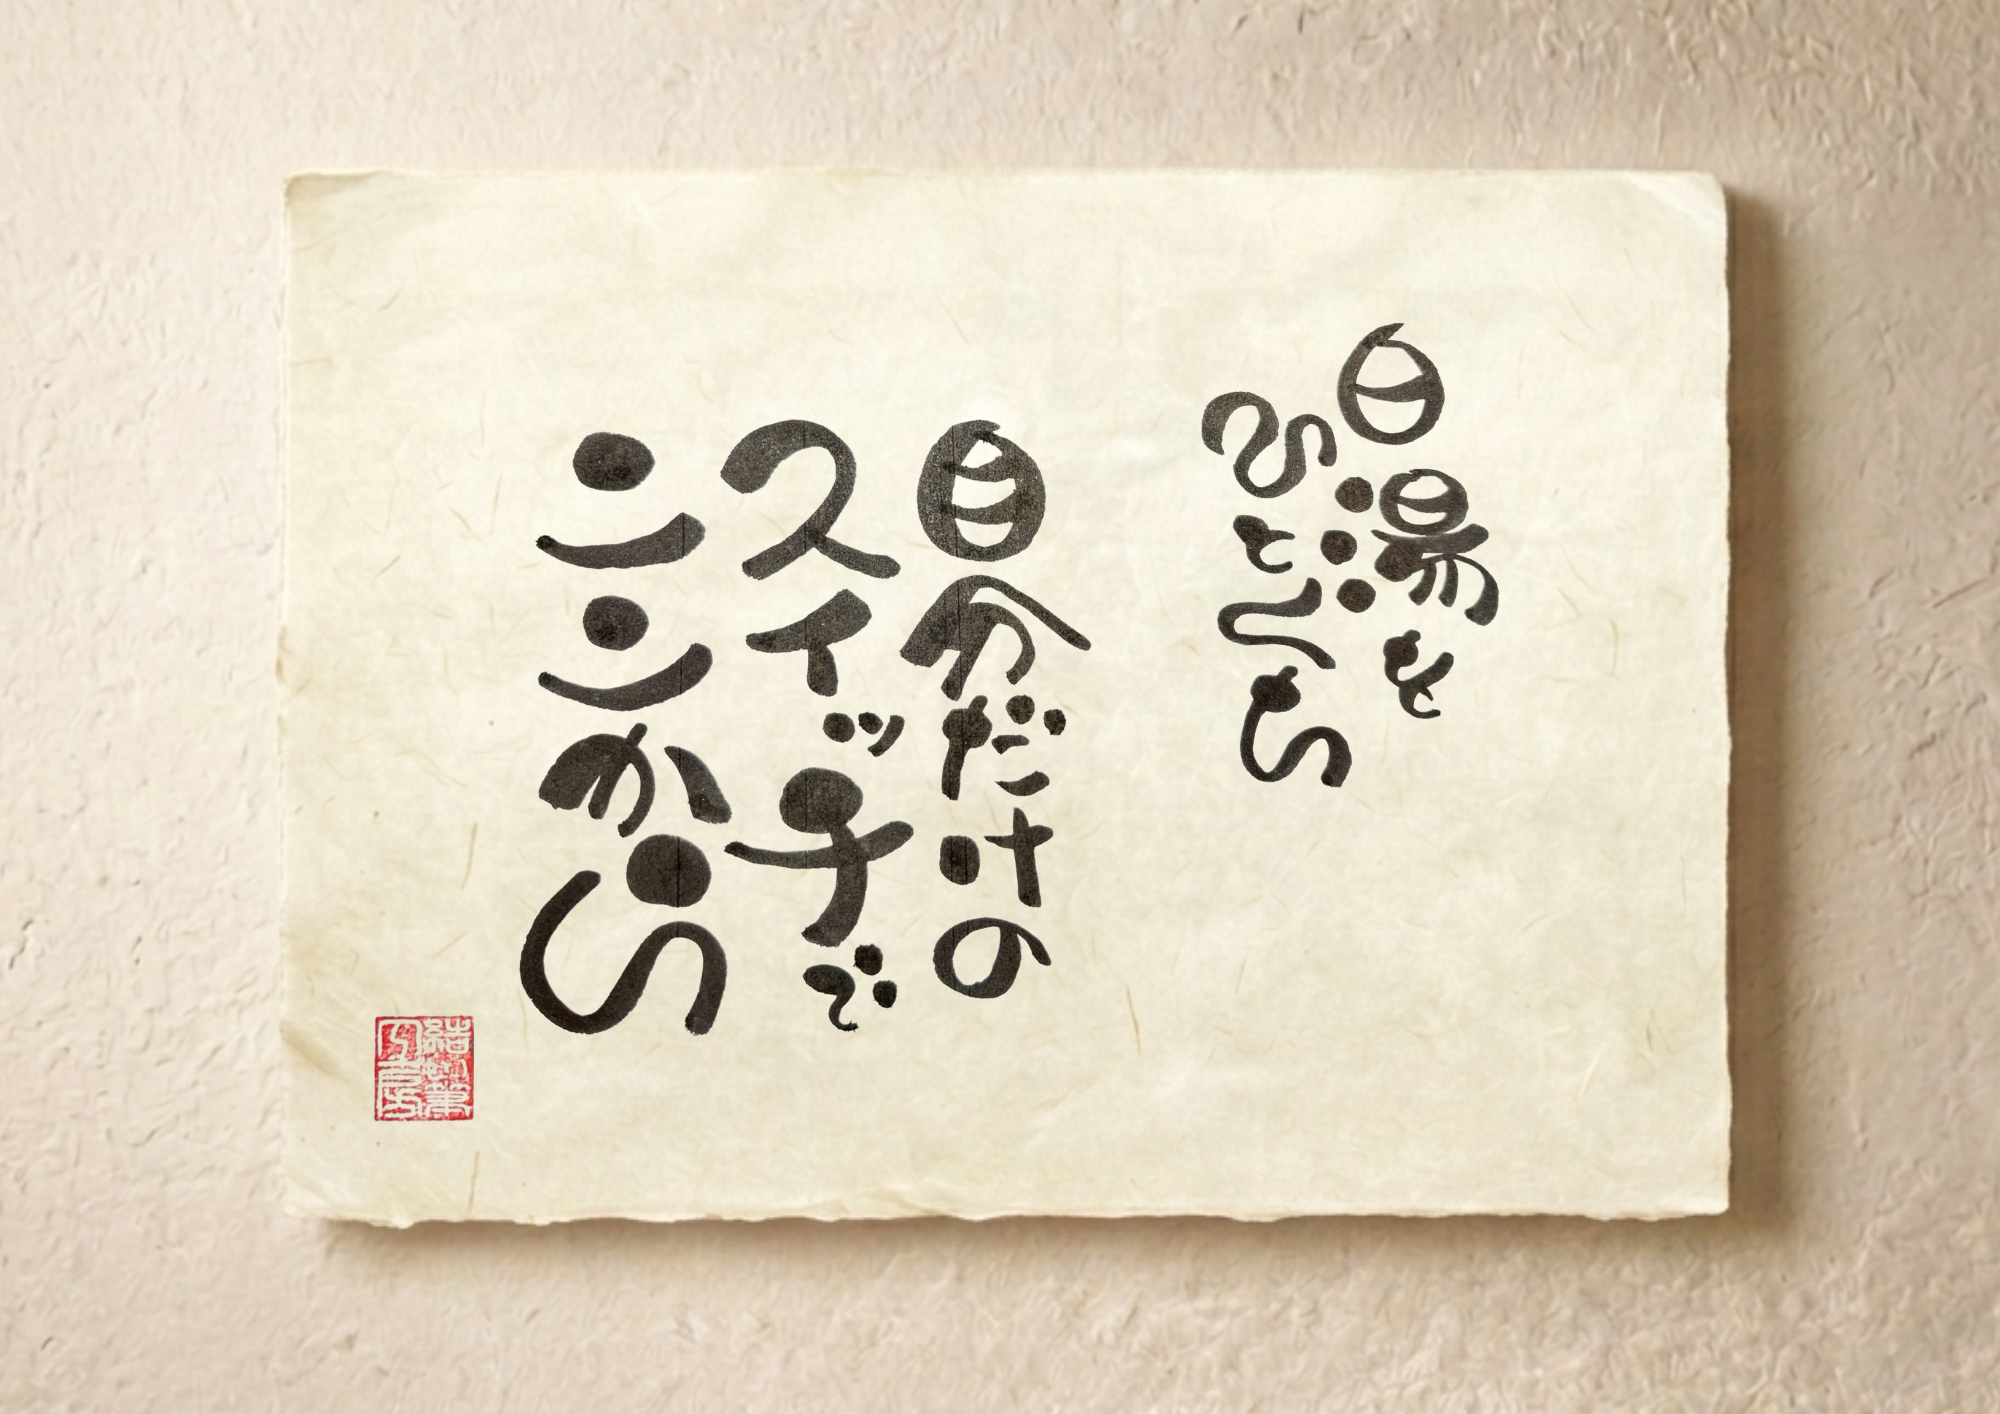 白湯を
ひとくち
自分だけの
スイッチで
ここから